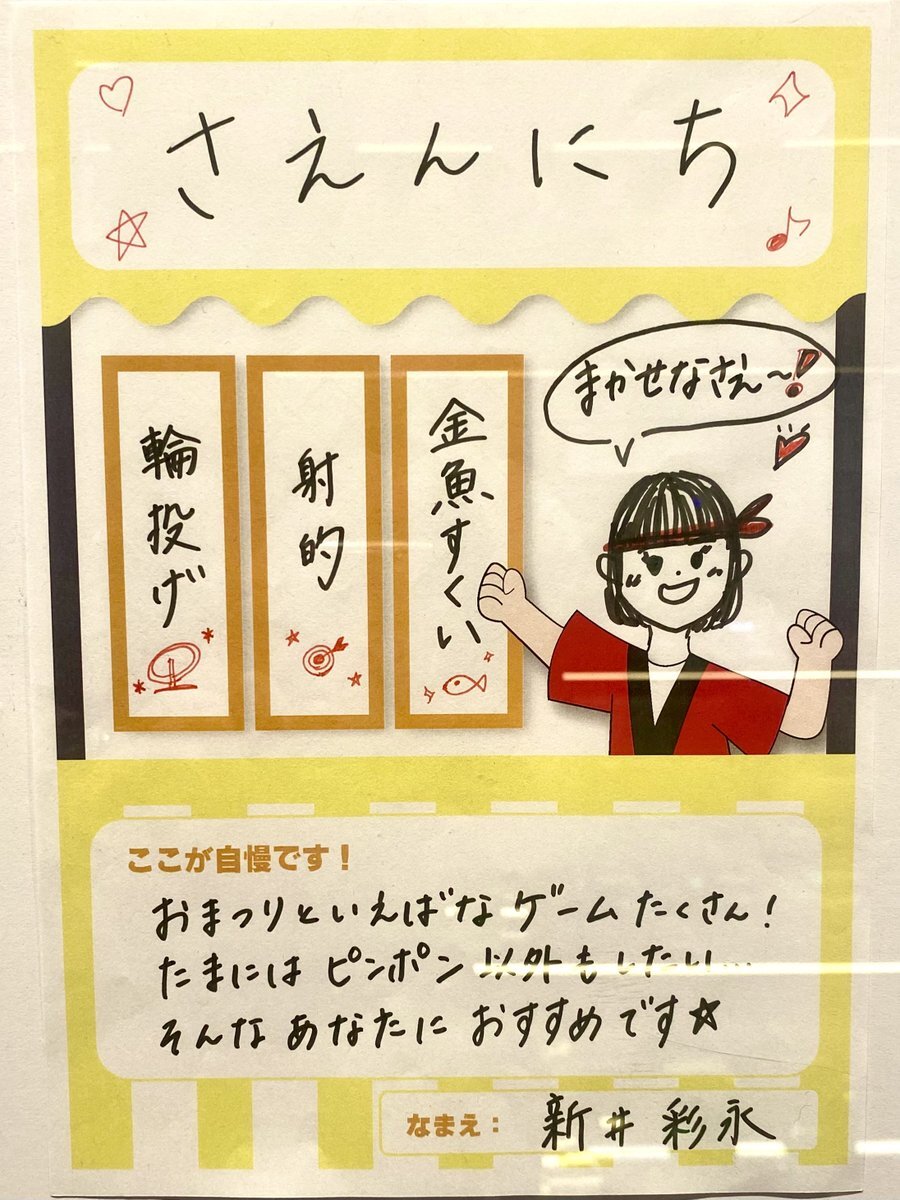 さえんにち
まかせなさえ〜!
金魚すくい
射的
輪投げ
ここが自慢です!
おまつりといえばなゲームたくさん!
たまにはピンポン以外もしたい…
そんなあなたにおすすめです☆
なまえ: 新井彩永